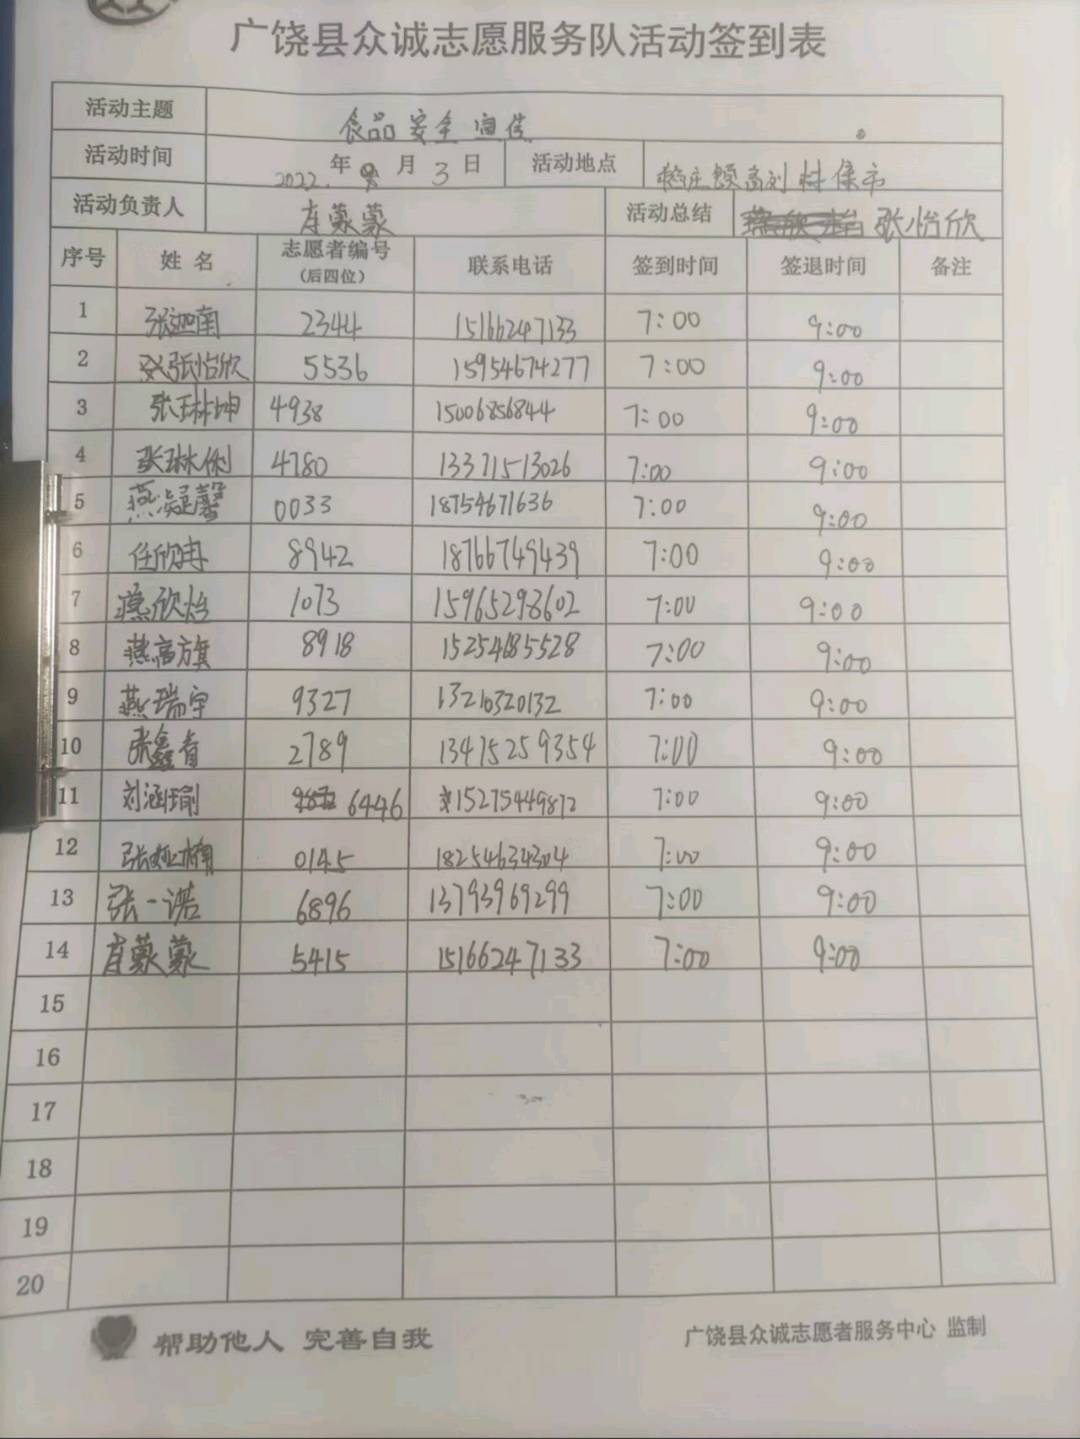 广饶县众诚志愿服务队活动签到表
活动主题 食品安全宣传
活动时间 2022.年 月3日 活动地点 高刘村集市
活动负责人 肖蒙蒙 活动总结 张怡欣
序号 姓名 志愿者编号(后四位) 联系电话 签到时间 签退时间 备注
1 张迦南 2344 15166247133 7:00 9:00
2 张怡欣 5536 15954674277 7:00 9:00
3 张琳坤 4938 15006856844 7:00 9:00
4 张琳 4780 13371513026 7:00 9:00
5 燕凝馨 0033 18754671636 7:00 9:00
6 任欣冉 8942 18766749439 7:00 9:00
7 燕欣怡 1073 15965298602 7:00 9:00
8 燕高旗 8918 15254685528 7:00 9:00
9 燕瑞宇 9327 13210320132 7:00 9:00
10 张鑫 2789 13475259354 7:00 9:00
11 刘涵瑜 6446 15275449872 7:00 9:00
12 张 0145 18254634304 7:00 9:00
13 张一诺 6896 13793969299 7:00 9:00
14 肖蒙蒙 5415 15166247133 7:00 9:00
15
16
17
18
19
20
帮助他人 完善自我 广饶县众诚志愿者服务中心 监制